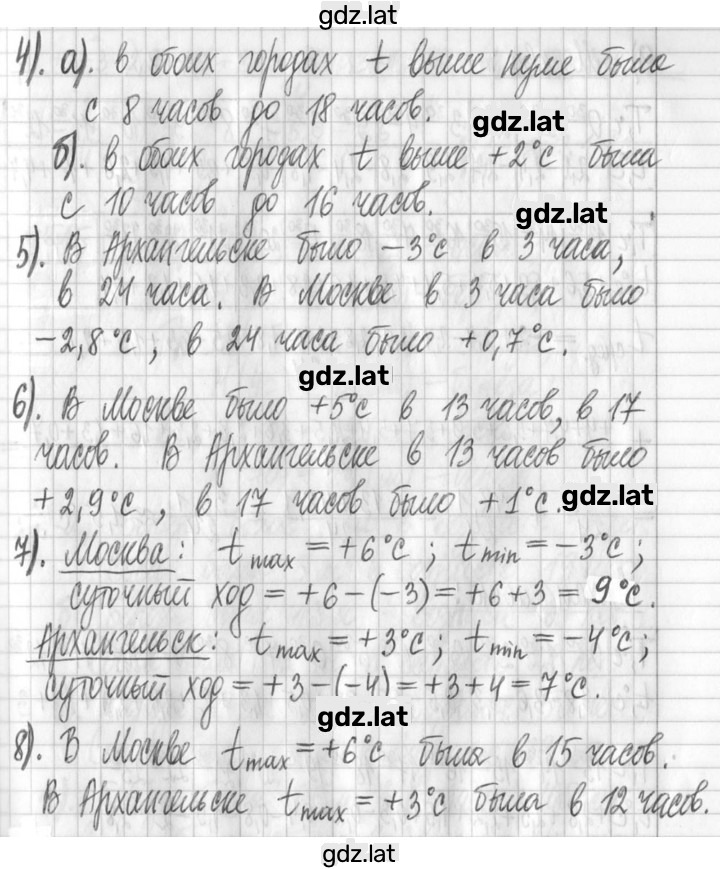 gdz.lat
4). а). в обоих городах t выше нуля была
с 8 часов до 18 часов.
gdz.lat
б). в обоих городах t выше +2°С была
с 10 часов до 16 часов.
gdz.lat
5). В Архангельске было -3°С в 3 часа,
в 24 часа. В Москве в 3 часа было
-2,8°С, в 24 часа было +0,7°С.
gdz.lat
6). В Москве было +5°С в 13 часов, в 17
часов. В Архангельске в 13 часов было
+2,9°С, в 17 часов было +1°С.
gdz.lat
7). Москва: t max = +6°С; t min = -3°С;
суточный ход = +6-(-3) = +6+3 = 9°С.
Архангельск: t max = +3°С; t min = -4°С;
суточный ход = +3-(-4) = +3+4 = 7°С.
gdz.lat
8). В Москве t max = +6°С была в 15 часов.
В Архангельске t max = +3°С была в 12 часов.
gdz.lat